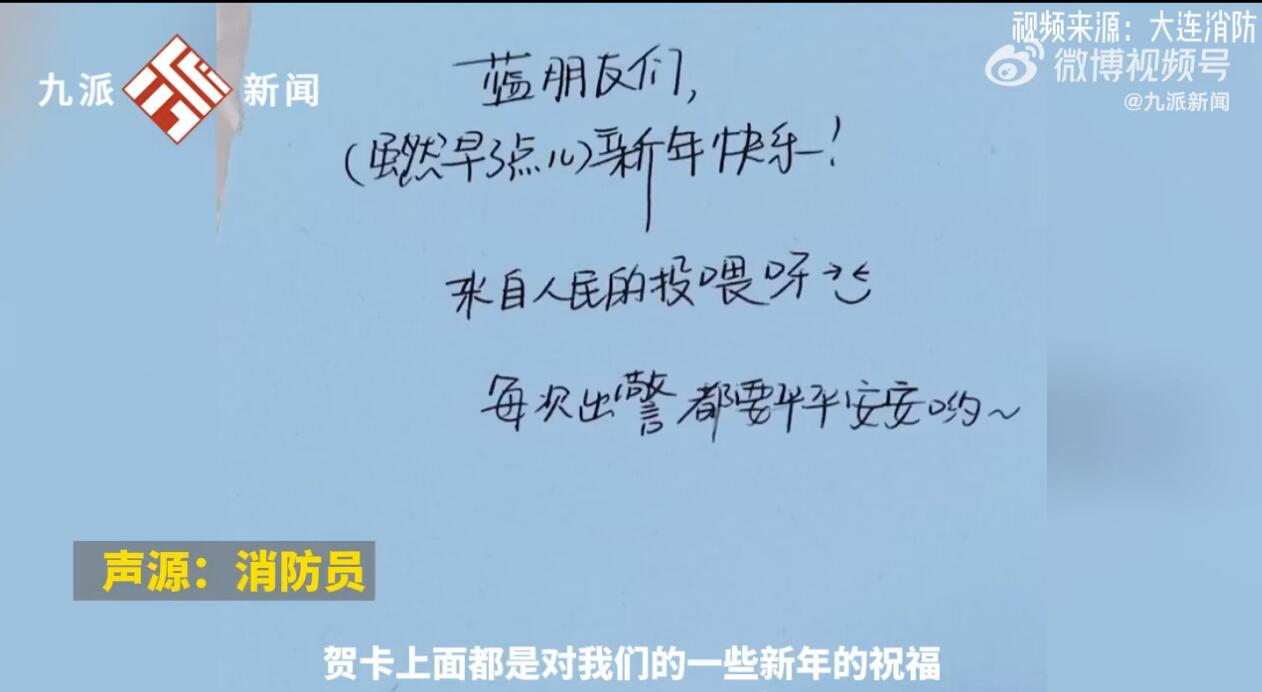 视频来源：大连消防
九派 新闻
微博视频号
@九派新闻
蓝朋友们，
（虽然早了点儿）新年快乐！
来自人民的投喂呀
每次出警都要平平安安哟～
声源：消防员
贺卡上面都是对我们的一些新年的祝福